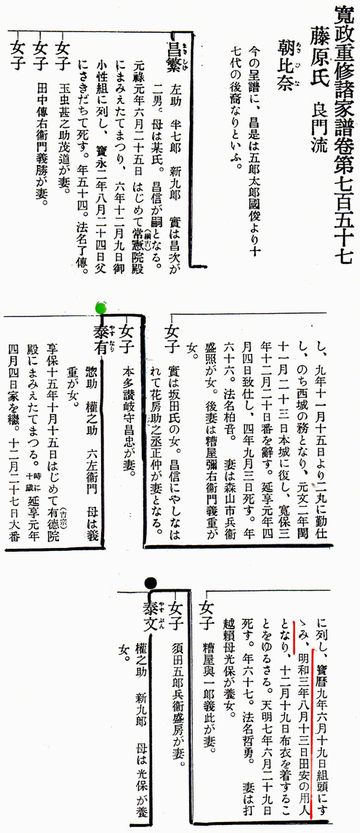 寬政重修諸家譜卷第七百五十七
藤原氏 良門流
朝比奈
あさひな
今の呈譜に、昌是は五郎太郎國俊より十
七代の後裔なりといふ。
昌繁
まさしげ
左助 半七郎 新九郎 實は昌次が
二男。母は某氏。昌信が嗣となる。
元祿元年六月二十五日はじめて常憲院殿
(綱吉)
にまみえたてまつり、六年十二月九日御
小性組に列し、寶永二年八月二十四日父
にさきだちて死す。年五十四。法名了傳。
女子
玉虫甚之助茂道が妻。
女子
田中傳右衞門義勝が妻。
女子
し、九年十一月十五日より二丸に勤仕
し、のち西城の務となり、元文二年閏
十一月二十三日本城に復し、寬保三
年十二月二十日番を辭す。延享元年四
月四日致仕し、四年九月三日死す。年
六十六。法名栫音。 妻は森山市兵衞
盛照が女。後妻は糟屋彌右衞門義重が
女。
女子
實は坂田氏の女。昌信にやしなは
れて花房助之丞正仲が妻となる。
女子
本多讃岐守昌忠が妻。
泰有
やすなり
惣助 權之助 六左衞門 母は義
重が女。
享保十五年十月十五日はじめて有德院
(吉宗)
殿にまみえたてまつる。時に十歲 延享元年
四月四日家を繼。十二月二十七日大番
に列し、寶曆九年六月十九日組頭にす
ゝみ、明和三年八月十三日田安の用人
となり、十二月十九日布衣を着するこ
とをゆるさる。天明七年六月二十九日
死す。年六十七。法名哲勇。 妻は打
越賴母光保が養女。
女子
糟屋與一郎義此が妻。
女子
須田五郎兵衞盛房が妻。
泰文
やすぶん
權之助 新九郎 母は光保が養
女。